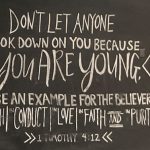 DON'T LET ANYONE
OK DOWN ON YOU BECAUSE
YOU ARE YOUNG,
BE AN EXAMPLE FOR THE BELIEVER
H IN CONDUCT IN LOVE IN FAITH AND IN PURIT
1 TIMOTHY 4:12